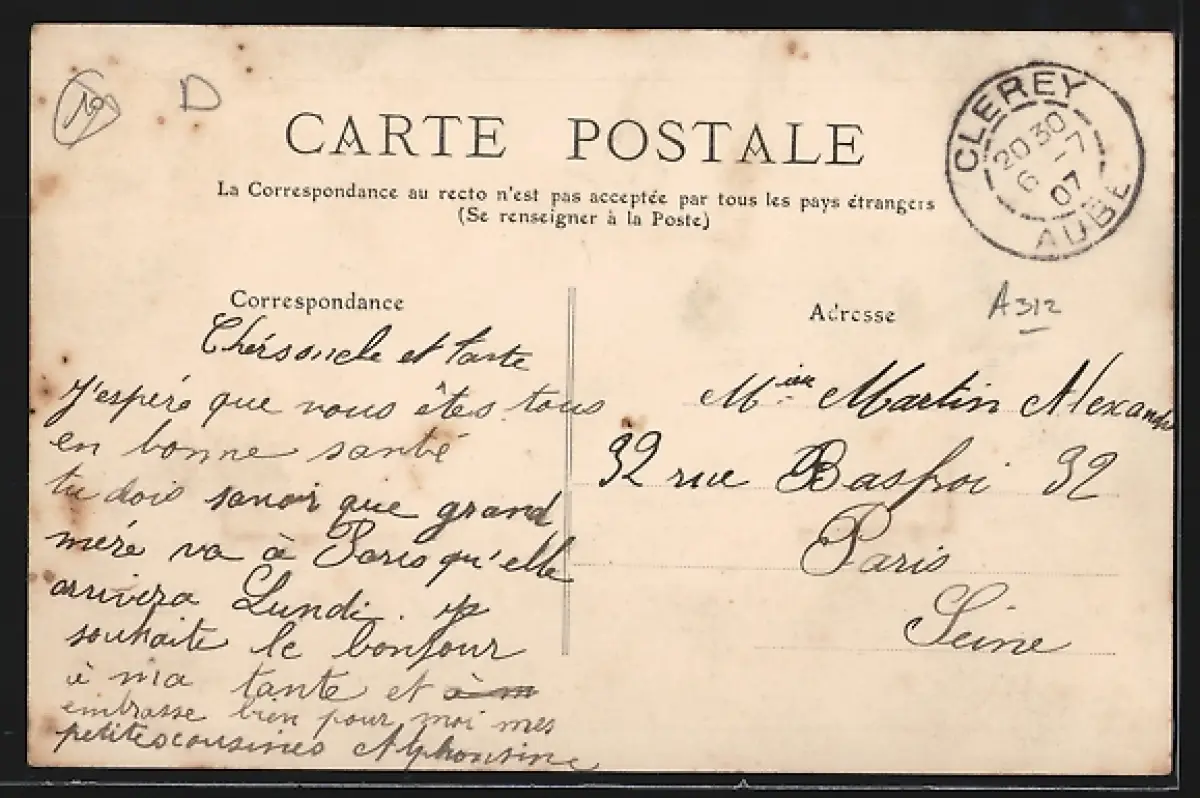 D
CARTE POSTALE
La Correspondance au recto n'est pas acceptée par tous les pays étrangers
(Se renseigner à la Poste)
CLEREY
20 30
6 - 7
07
AUBE
Correspondance
Chers oncle et tante
J'espére que vous êtes tous
en bonne santé
tu dois savoir que grand
mére va à Paris qu'elle
arrivera Lundi. je
souhaite le bonjour
à ma tante et
embrasse bien pour moi mes
petites cousines Alphonsine
Adresse
A312
Martin Alexandre
32 rue Basfroi 32
Paris
Seine